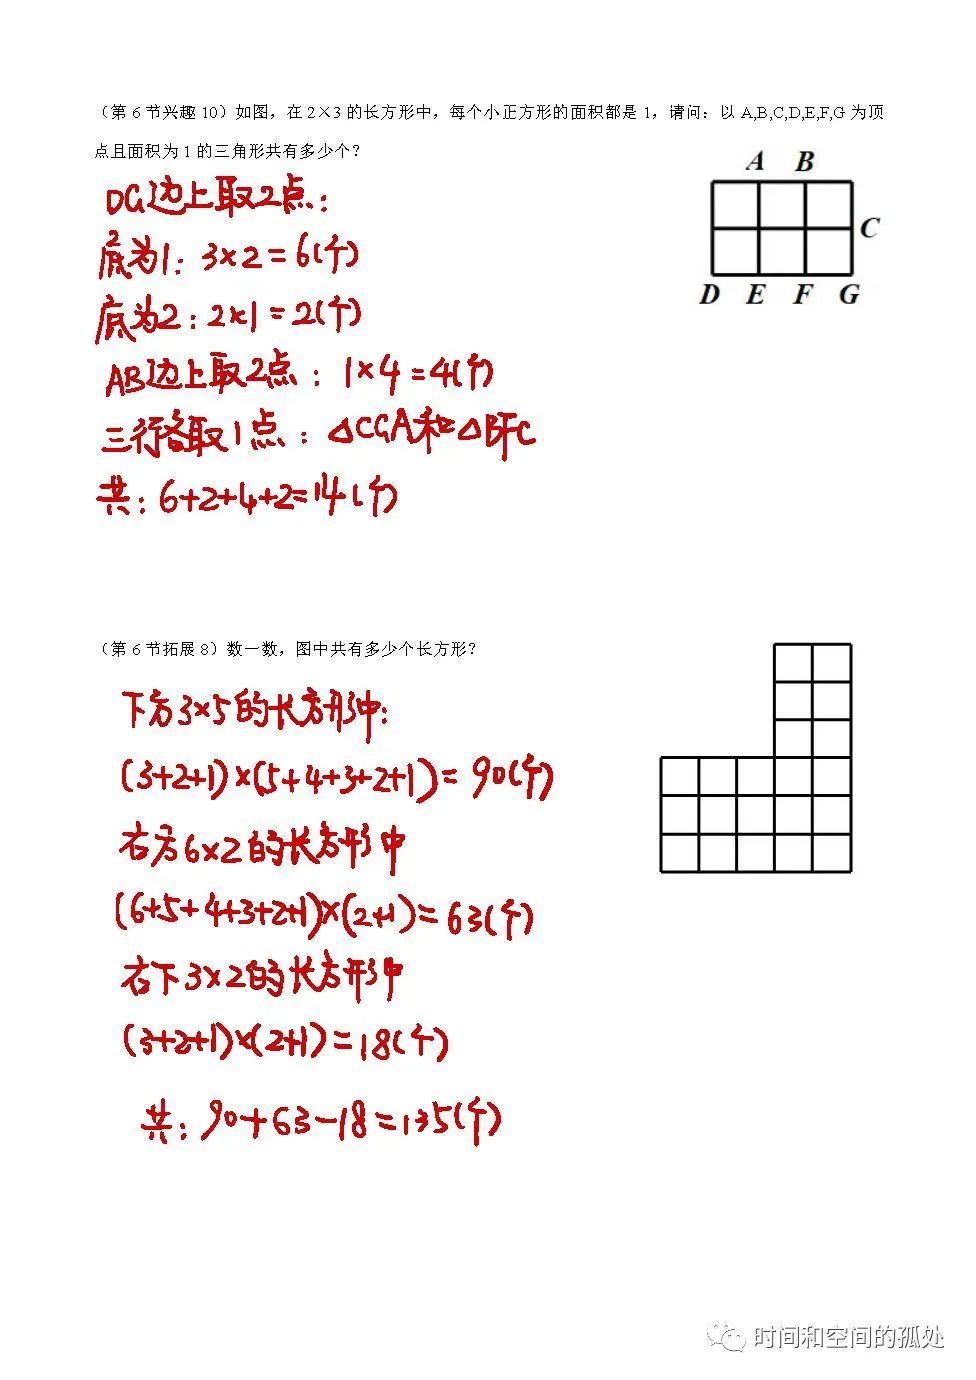 （第6节兴趣10）如图，在2×3的长方形中，每个小正方形的面积都是1，请问：以A,B,C,D,E,F,G为顶
点且面积为1的三角形共有多少个？
A B
C
D E F G
DG边上取2点：
底为1：3×2=6(个)
底为2：2×1=2(个)
AB边上取2点：1×4=4(个)
三行各取1点：△CGA和△BFC
共：6+2+4+2=14(个)
（第6节拓展8）数一数，图中共有多少个长方形？
下方3×5的长方形中：
(3+2+1)×(5+4+3+2+1)=90(个)
右方6×2的长方形中
(6+5+4+3+2+1)×(2+1)=63(个)
右下3×2的长方形中
(3+2+1)×(2+1)=18(个)
共：90+63-18=135(个)
时间和空间的孤处